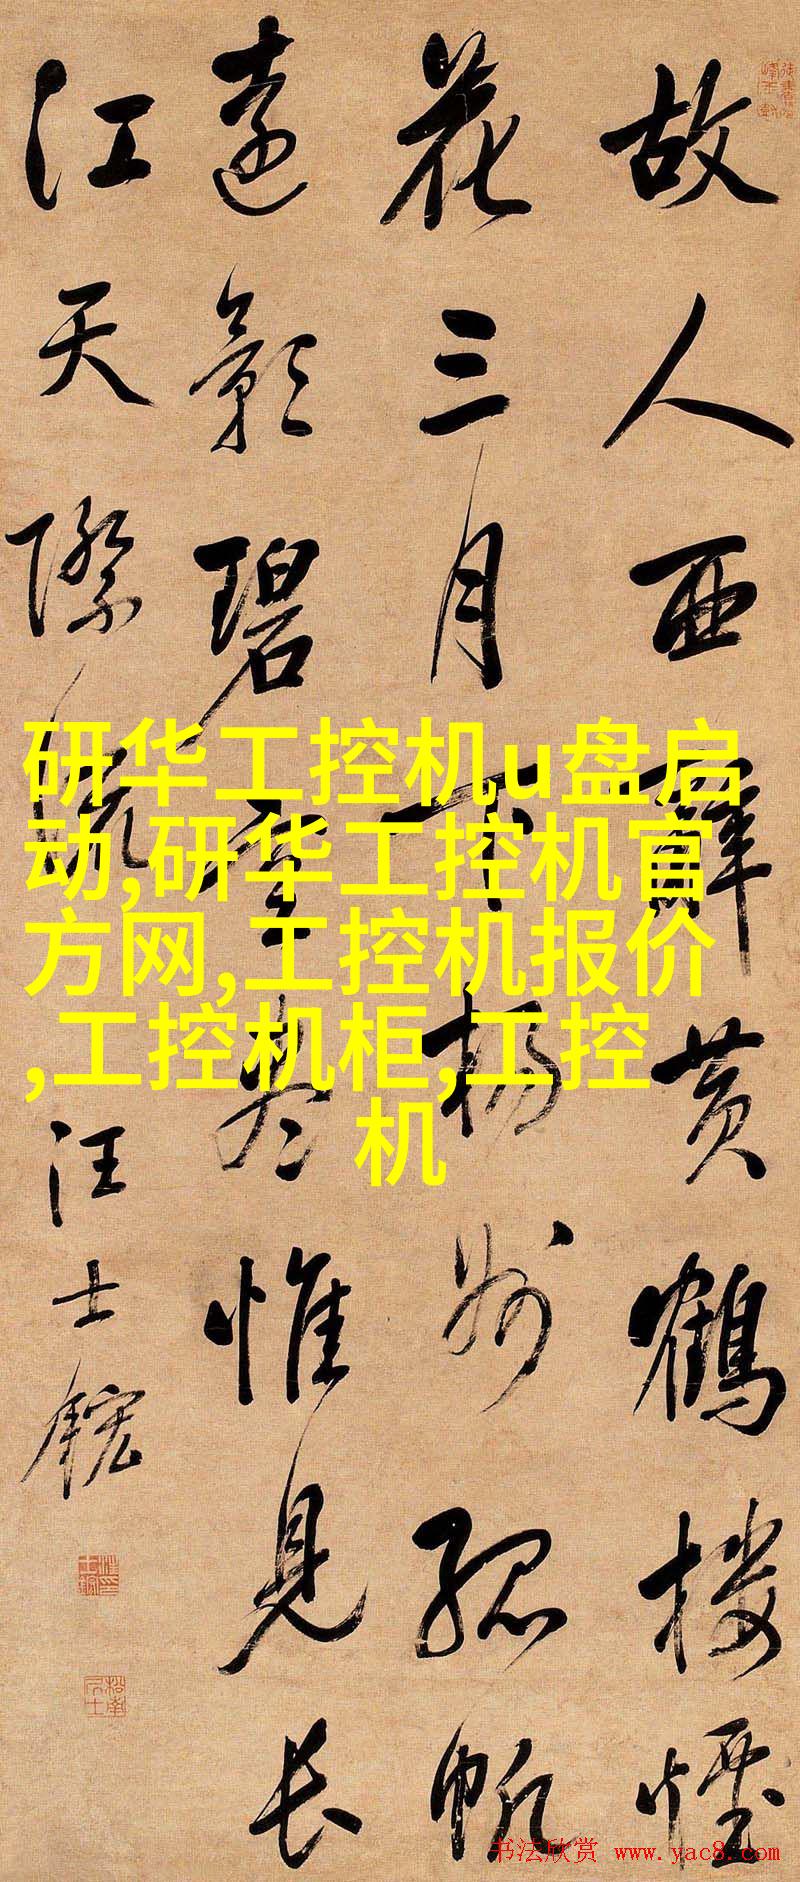 故人西辭黄鶴樓煙
花三月下揚州孤帆
遠影碧空盡惟見長
江天際流
汪士鋐
研华工控机u盘启
动,研华工控机官
方网,工控机报价
,工控机柜,工控
机
书法欣赏 www.yac8.com